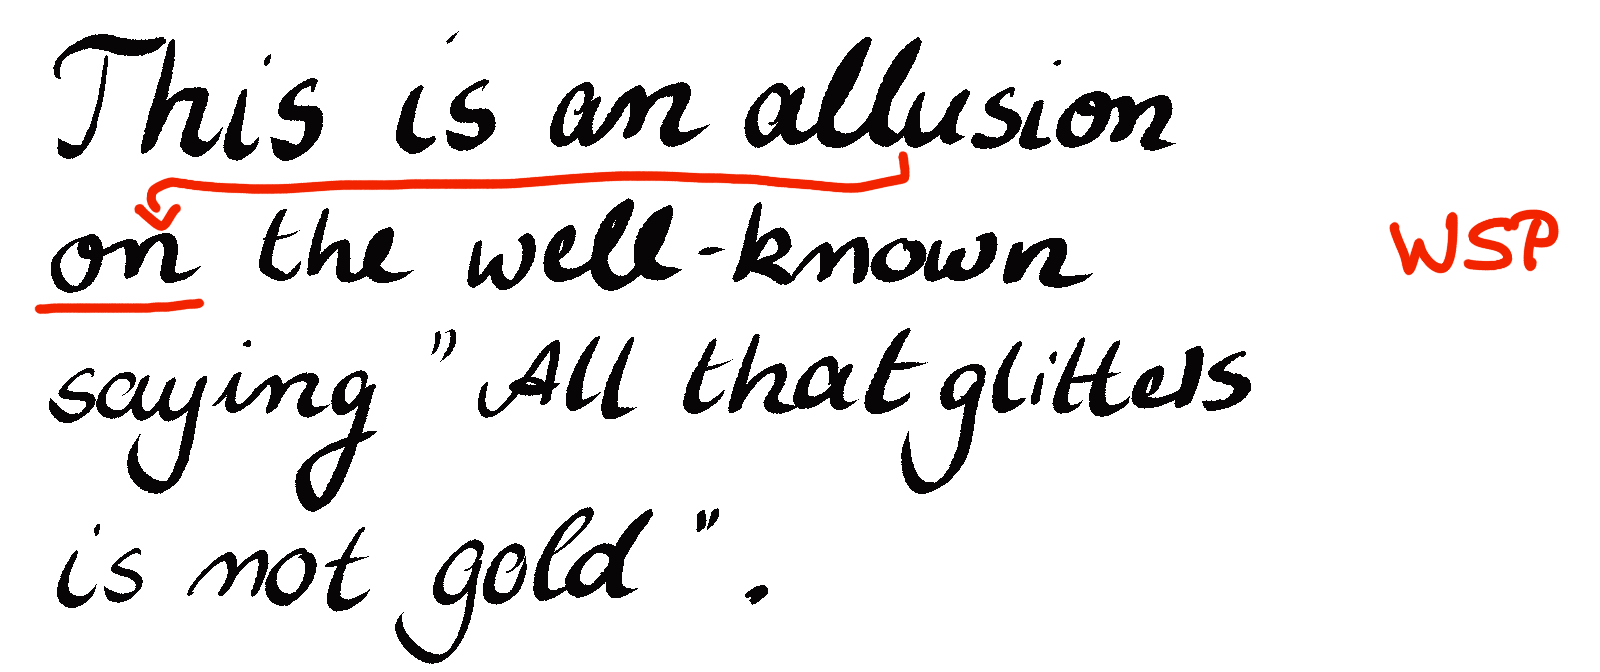 This is an allusion
on the well-known WSP
saying "All that glitters
is not gold".